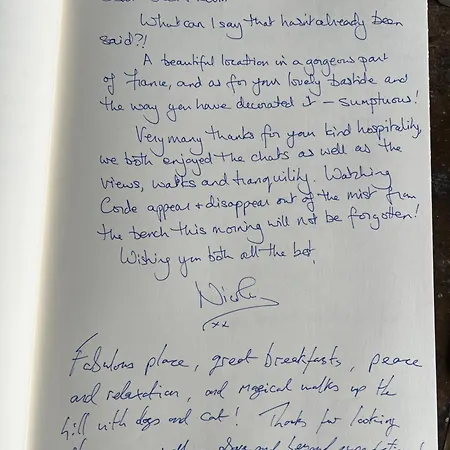 What can I say that hasn't already been
said?!
A beautiful location in a gorgeous part
of France, and as for your lovely bastide and
the way you have decorated it – sumptuous!
Very many thanks for your kind hospitality,
we both enjoyed the chats as well as the
views, walks and tranquility. Watching
Corde appear + disappear out of the mist from
the bench this morning will not be forgotten!
Wishing you both all the best,
xx
Fabulous place, great breakfasts, peace
and relaxation, and magical walks up the
hill with dogs and cat! Thanks for looking